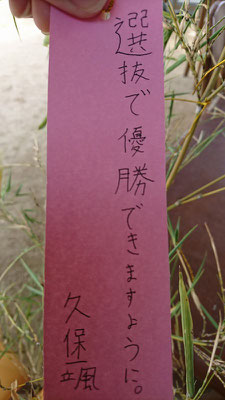 選抜で優勝できますように。
久保颯